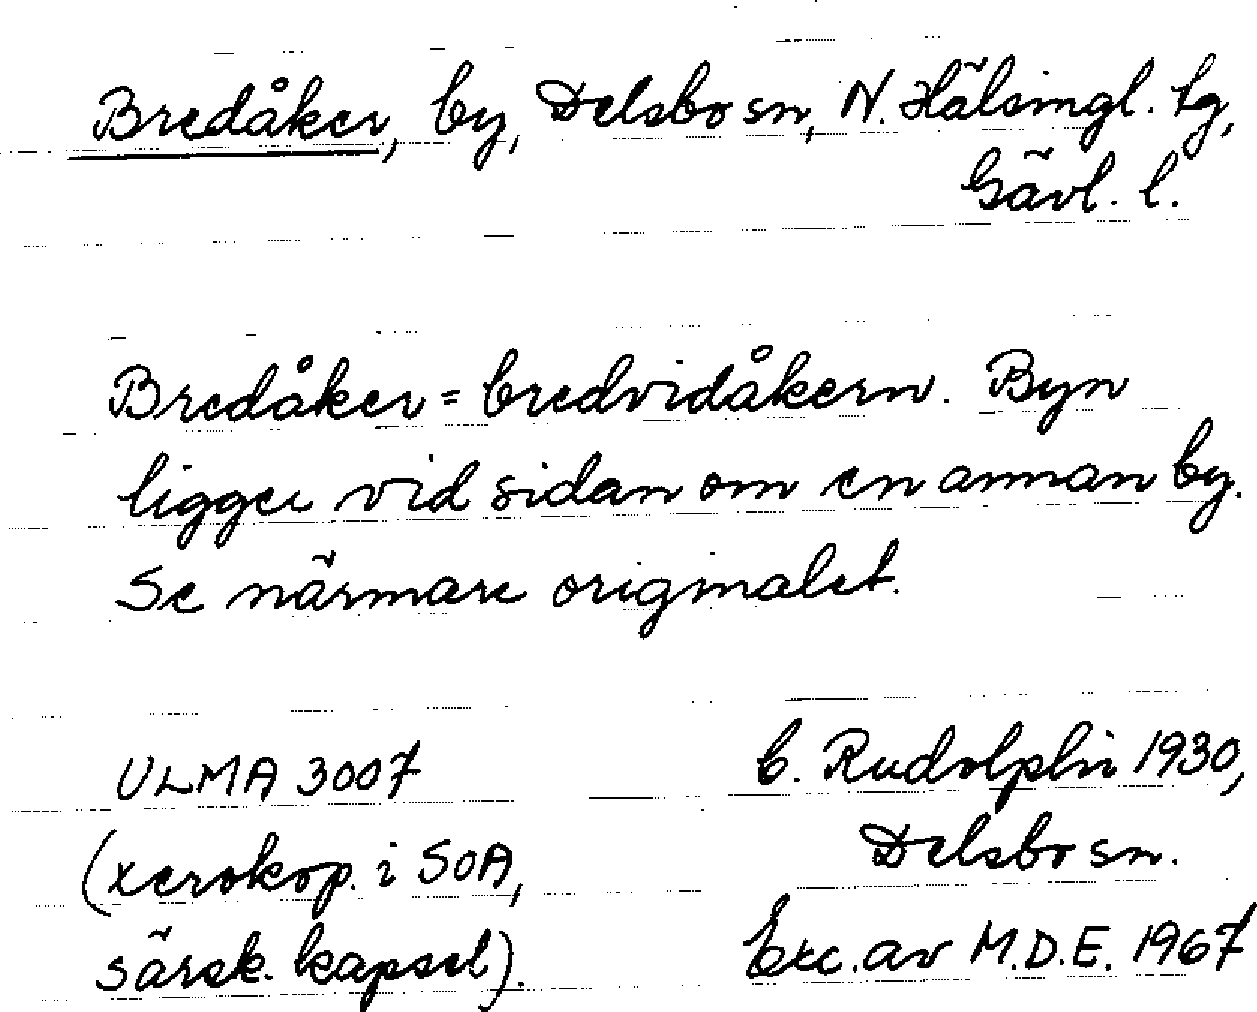 Bredåker, by, Delsbo sn, N. Hälsingl. tg,
Gävl. l.
Bredåker = bredvidåkern. Byn
ligger vid sidan om en annan by.
Se närmare originalet.
ULMA 3007
(xerokop. i SOA,
särsk. kapsel).
C. Rudolphi 1930,
Delsbo sn.
Exc. av M.D.E. 1967